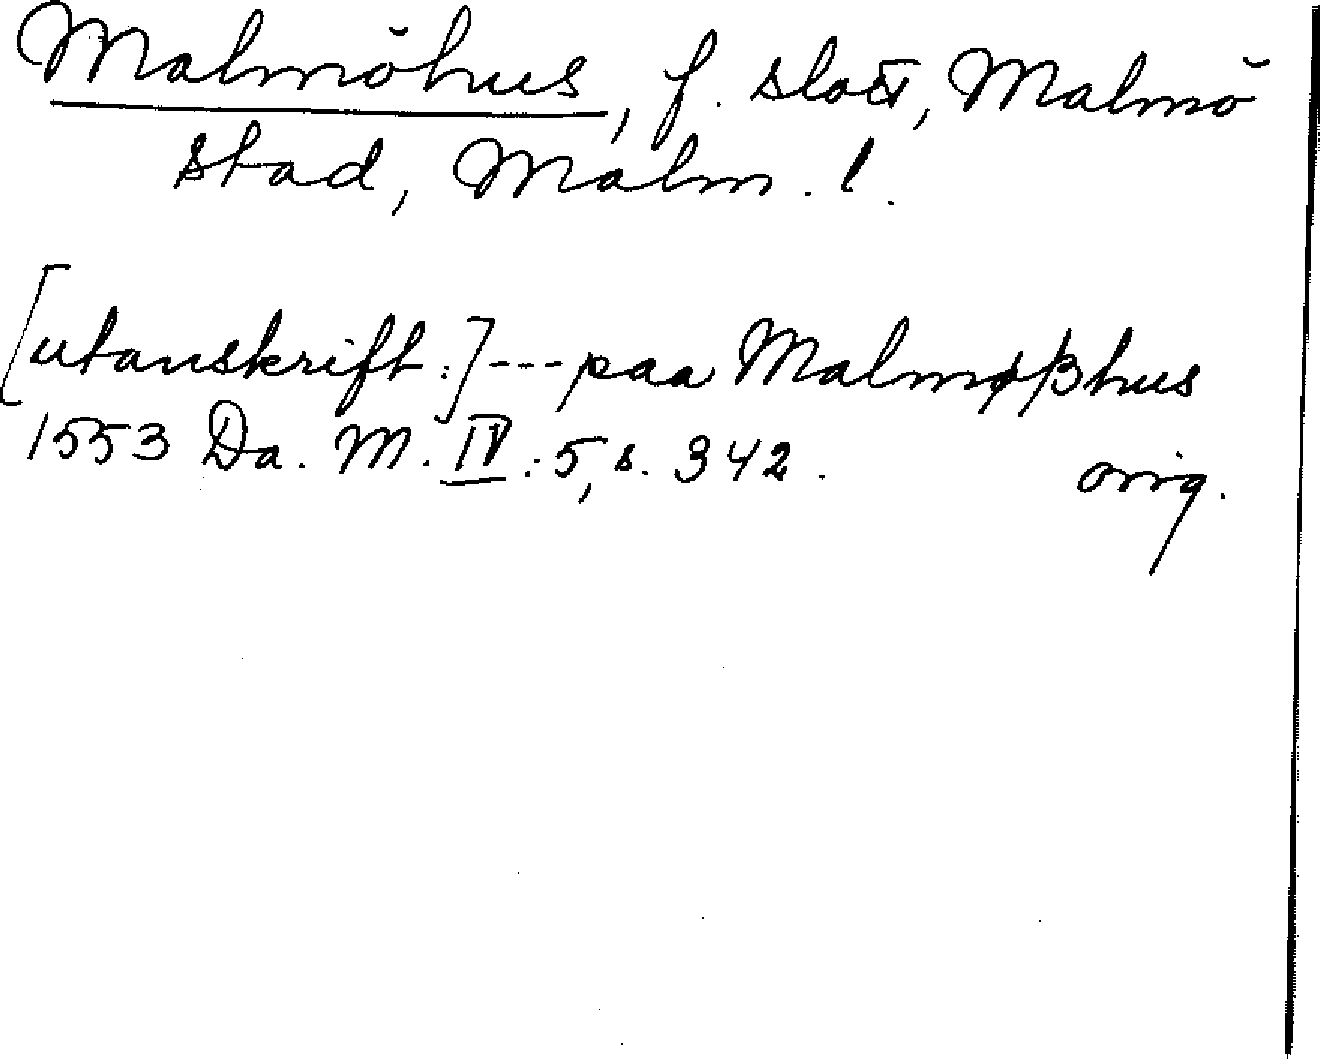 Malmöhus, f. slott, Malmö
stad, Malm. l.
[utanskrift:]---paa Malmøßhus
1553 Da. M. IV:5, s. 342. orig.